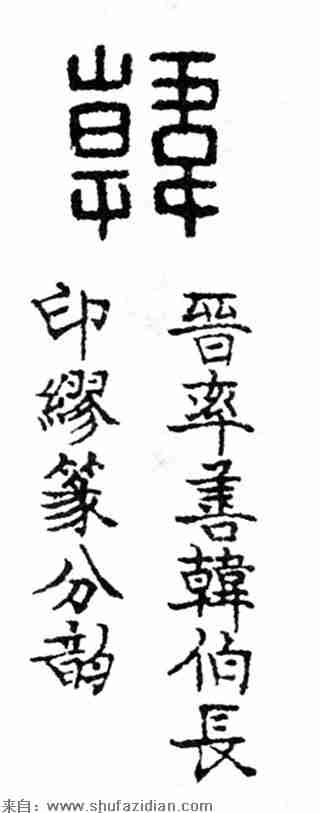 韓
晉率善韓佰長
印繆篆分韵
来自：www.shufazidian.com